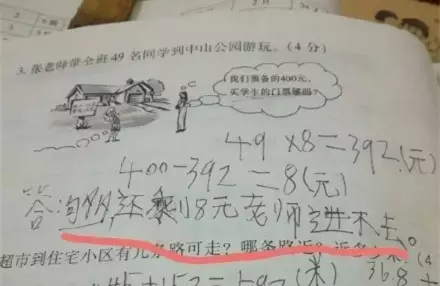 3. 张老师带全班49名同学到中山公园游玩。(4分)
我们预备的400元,
买学生的门票够吗?
49×8=392(元)
400-392=8(元)
答沟阴,还剩18元老师进不去。
超市到住宅小区有几条路可走?哪条路近?近多少米?(4
(米)
36.8